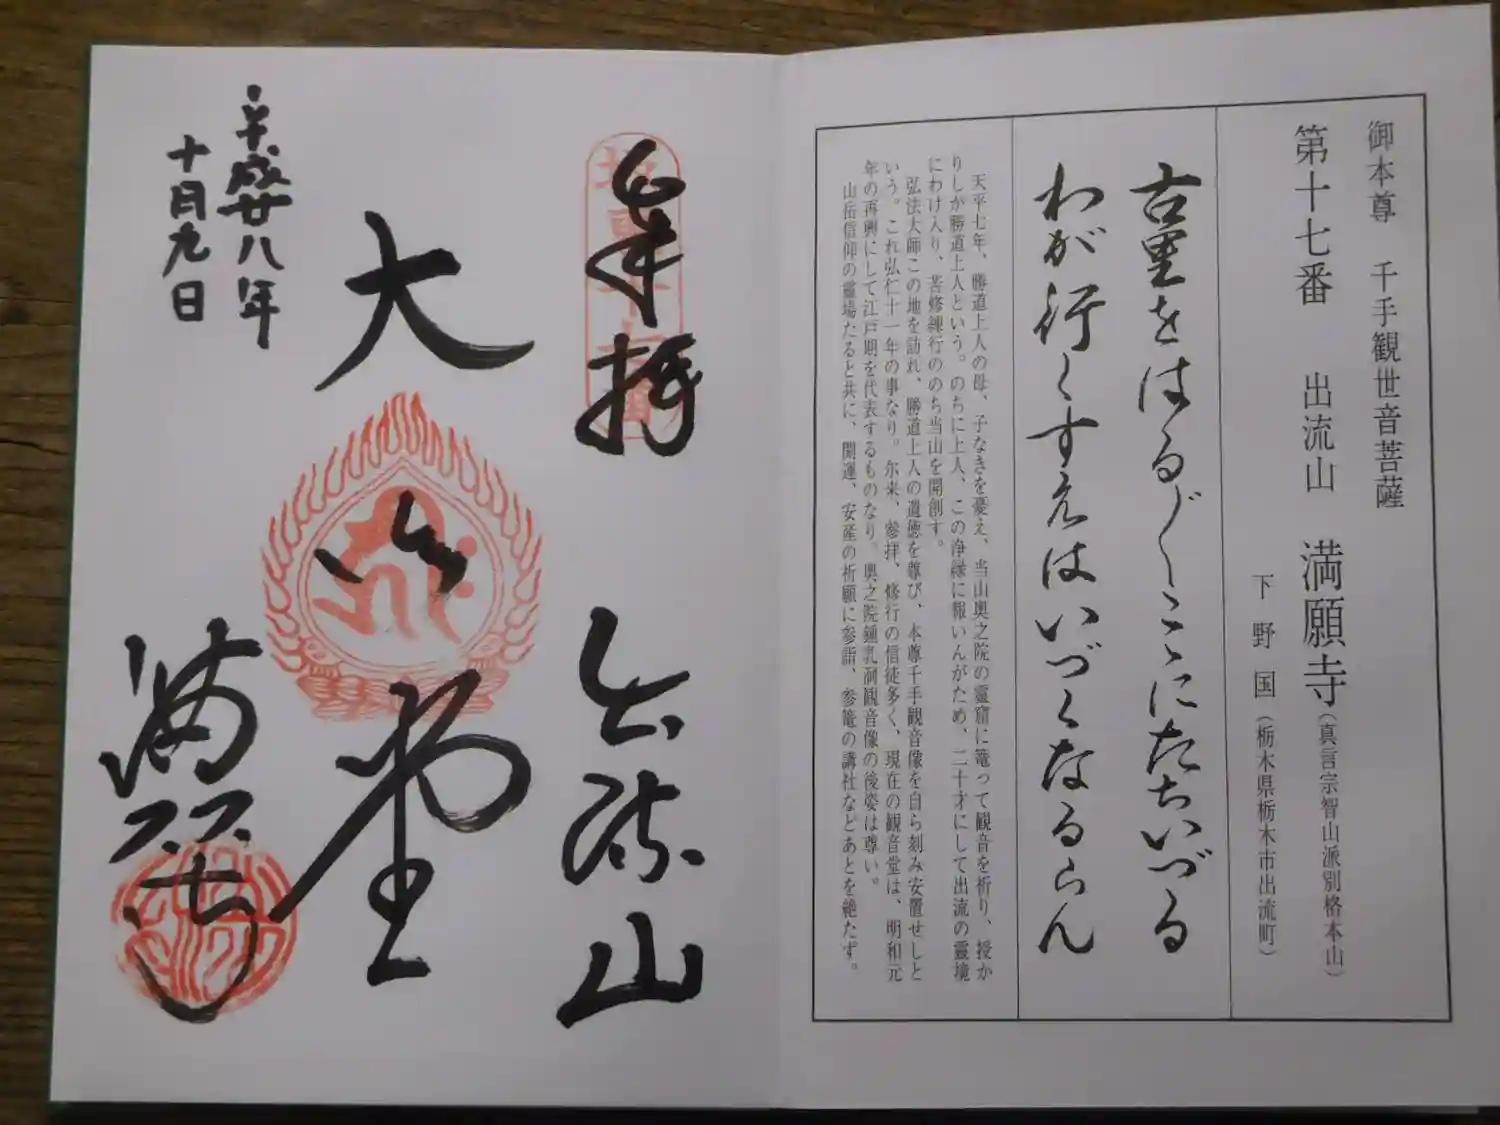 御本尊 千手観世音菩薩
第十七番 出流山 満願寺(真言宗智山派別格本山)
下野国(栃木県栃木市出流町)
古里をはる〲こゝにたちいづる
わが行くすえはいづくなるらん
天平七年、勝道上人の母、子なきを憂え、当山奥之院の霊窟に篭って観音を祈り、授か
りしが勝道上人という。のちに上人、この浄縁に報いんがため、二十才にして出流の霊境
にわけ入り、苦修練行ののち当山を開創す。
弘法大師この地を訪れ、勝道上人の遺徳を尊び、本尊千手観音像を自ら刻み安置せしと
いう。これ弘仁十一年の事なり。尓来、参拝、修行の信徒多く、現在の観音堂は、明和元
年の再興にして江戸期を代表するものなり。奥之院鍾乳洞観音像の後姿は尊い。
山岳信仰の霊場たると共に、開運、安産の祈願に参詣、参篭の講社などあとを絶たず。
奉拝 出流山
坂東十七番
大悲堂
満願寺
平成廿八年
十月九日